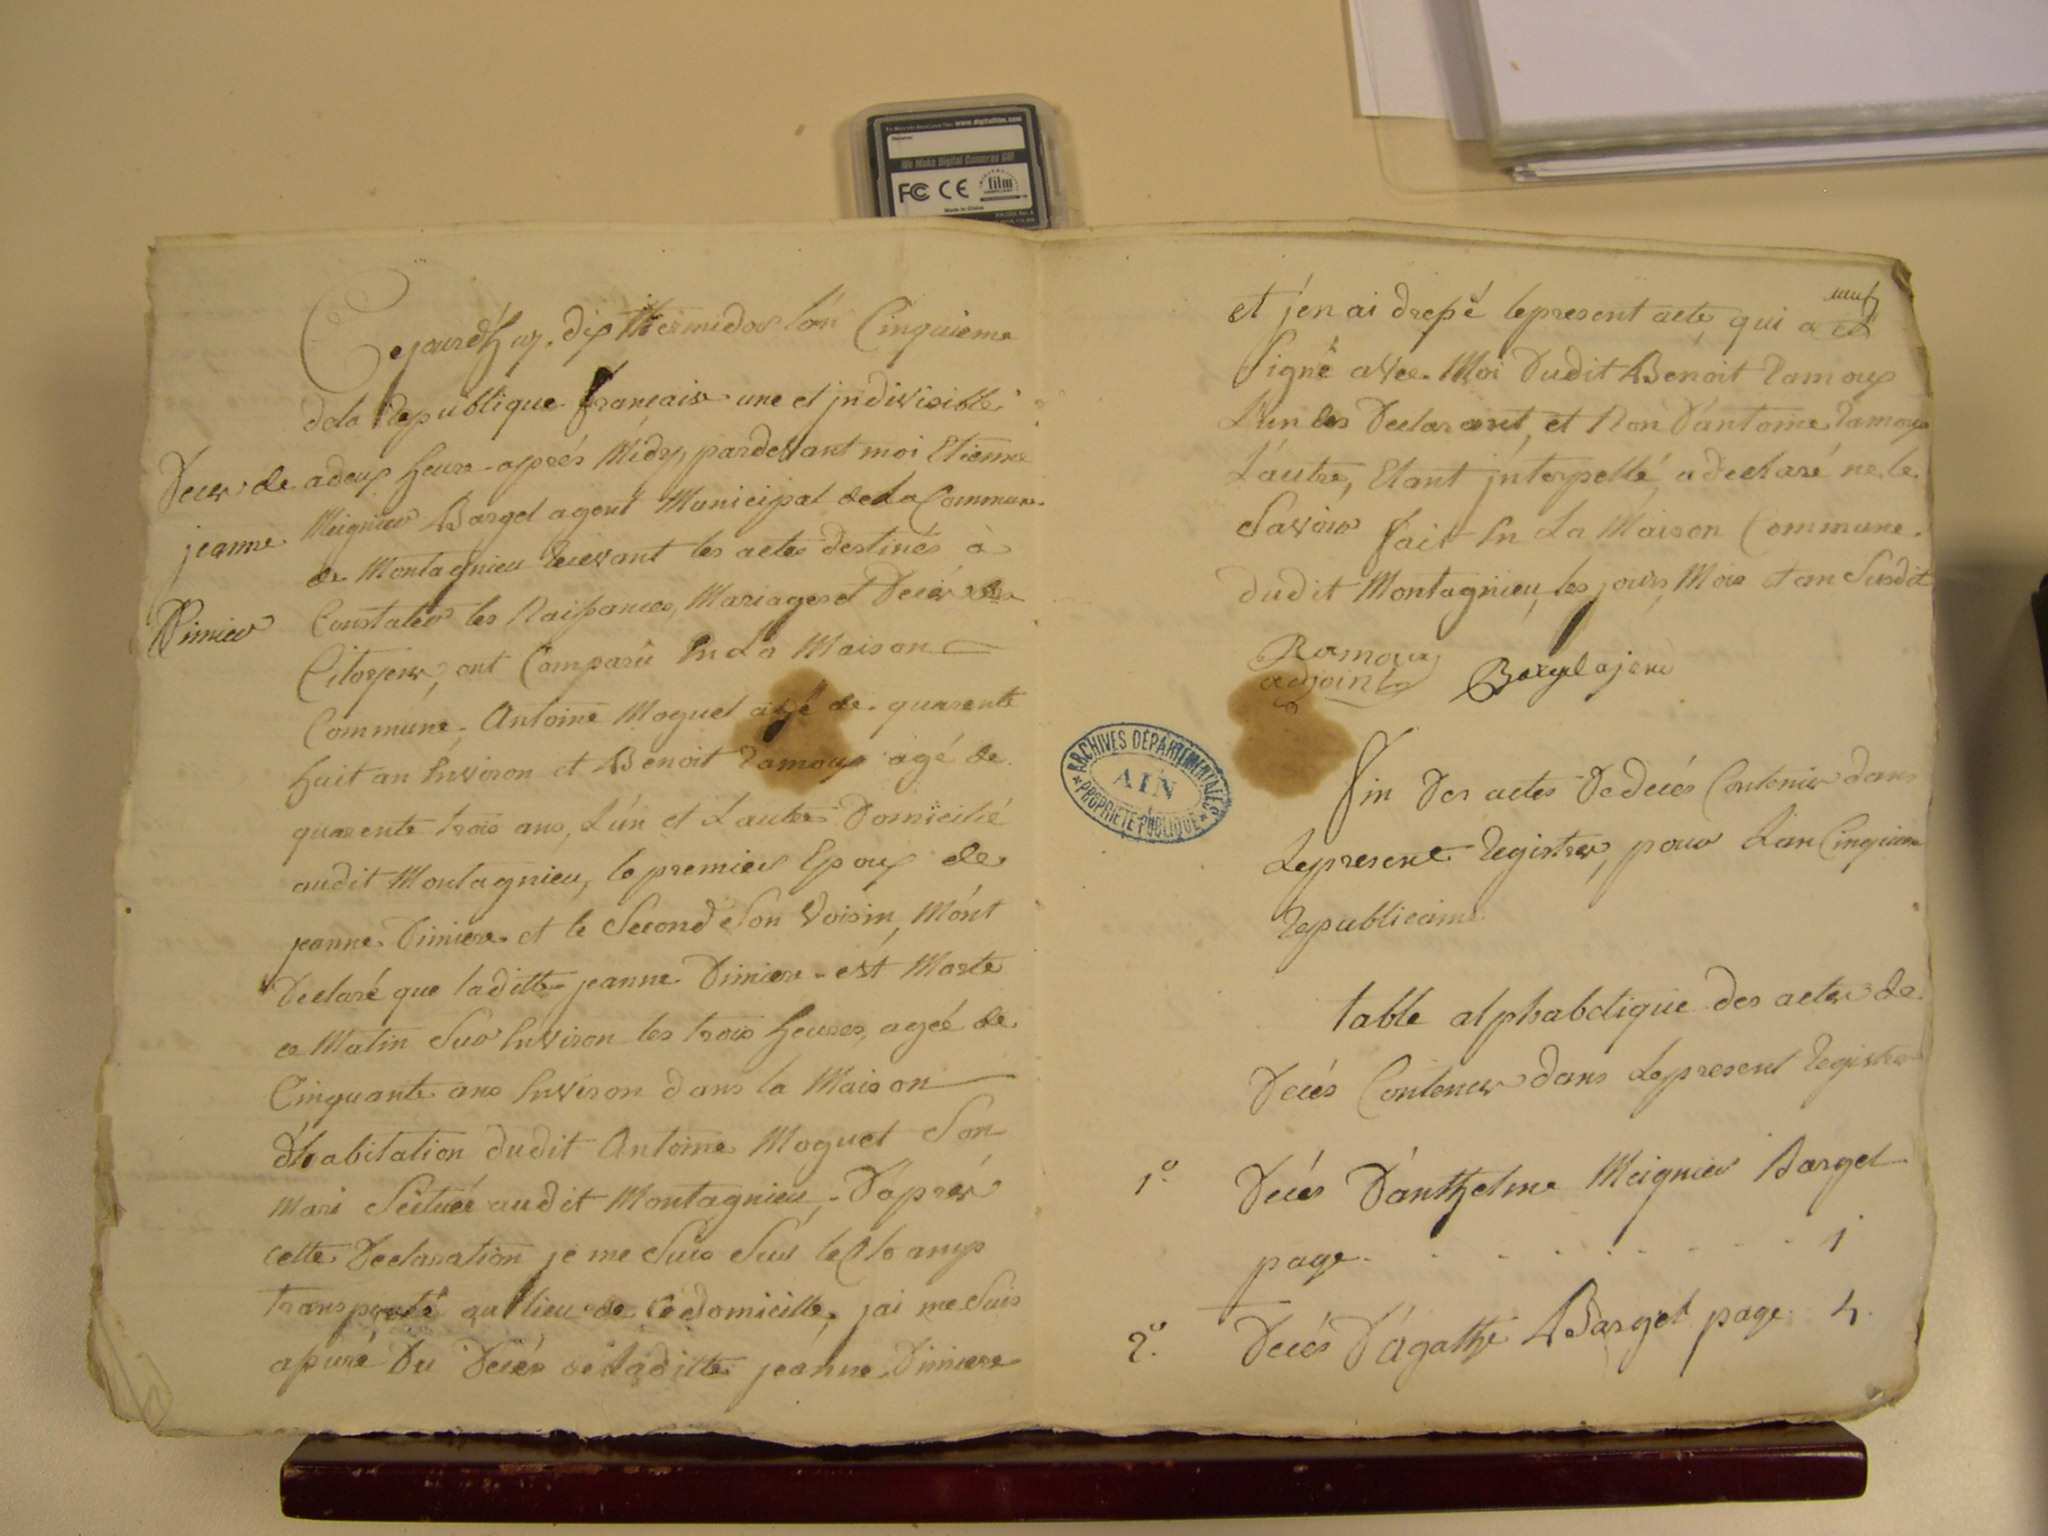 We Make Digital Cameras GO!
FC CE film
Made in China
Cejourd'huy, dix thermidor l'an Cinquieme
dela Republique francaise une et jndivisible
adeux heure après Midy, pardevant moi Etienne
Meignier Barget agent Municipal de La Commune
de Montagnieu Recevant les actes destinés à
Constater les Naissances, Mariages et Decès des
Citoyens, ont Comparû En La Maison
Commune Antoine Moguet agé de quarente
huit an Environ et Benoit Ramoux agé de
quarente trois ans, L'un et Lautre Domicilié
audit Montagnieu, le premier Epoux de
jeanne Dimiere et le Second Son Voisin, M'ont
Declaré que laditte jeanne Dimiere est Morte
ce Matin Sur Environ les trois heures, agée de
Cinquante ans Environ dans la Maison
d'habitation dudit Antoine Moguet Son
Mari Scituée audit Montagnieu, D'après
cette Declaration je me Suis Sur le Champ
transporté au lieu de Ce domicille, jai me Suis
assuré Du Decès de laditte jeanne Dimiere
Decès de
jeanne
Dimier
et j'en ai dressé lepresent acte qui a eté
Signé avec Moi Dudit Benoit Ramoux
L'un des Declarant, et Non D'antoine Ramoux
L'autre, Etant jnterpellé, a declaré ne le
Savoir fait En La Maison Commune
dudit Montagnieu, les jours, Mois et an Susdit
Ramoux
adjoint Barget ajent
ARCHIVES DÉPARTEMENTALES
AIN
PROPRIÉTÉ PUBLIQUE
Fin Des actes De decés Contenus dans
Lepresent Registre, pour L'an Cinquieme
Republicaine
table alphabetique des actes de
Decés Contenus dans Lepresent Registre
1º Decés D'anthelme Meignier Barget
page . . . . . . . . . 1
2º. Decés D'agathe Barget page 4.